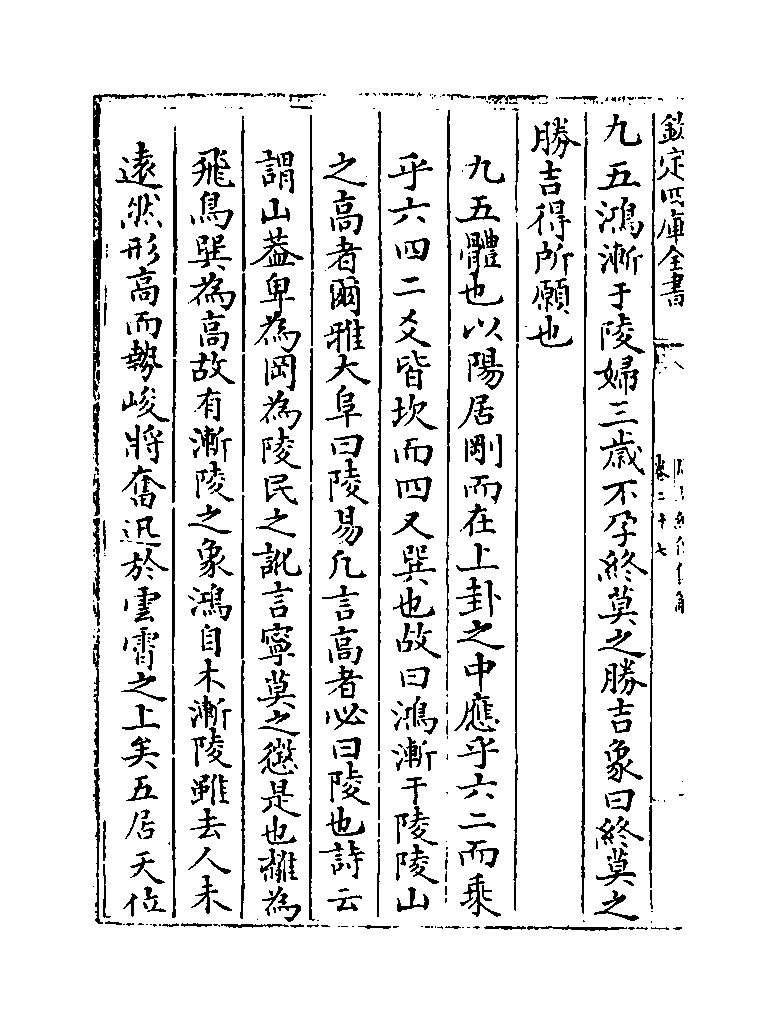 欽定四庫全書
卷二十七
九五鴻漸于陵婦三歳不孕終莫之勝吉象曰終莫之
勝吉得所願也
九五體也以陽居剛而在上卦之中應乎六二而乘
乎六四二爻皆坎而四又巽也故曰鴻漸于陵陵山
之高者爾雅大阜曰陵易凡言高者必曰陵也詩云
謂山葢卑為岡為陵民之訛言寧莫之懲是也離為
飛鳥巽為高故有漸陵之象鴻自木漸陵雖去人未
逺然形高而勢峻將奮迅於雲霄之上矣五居天位